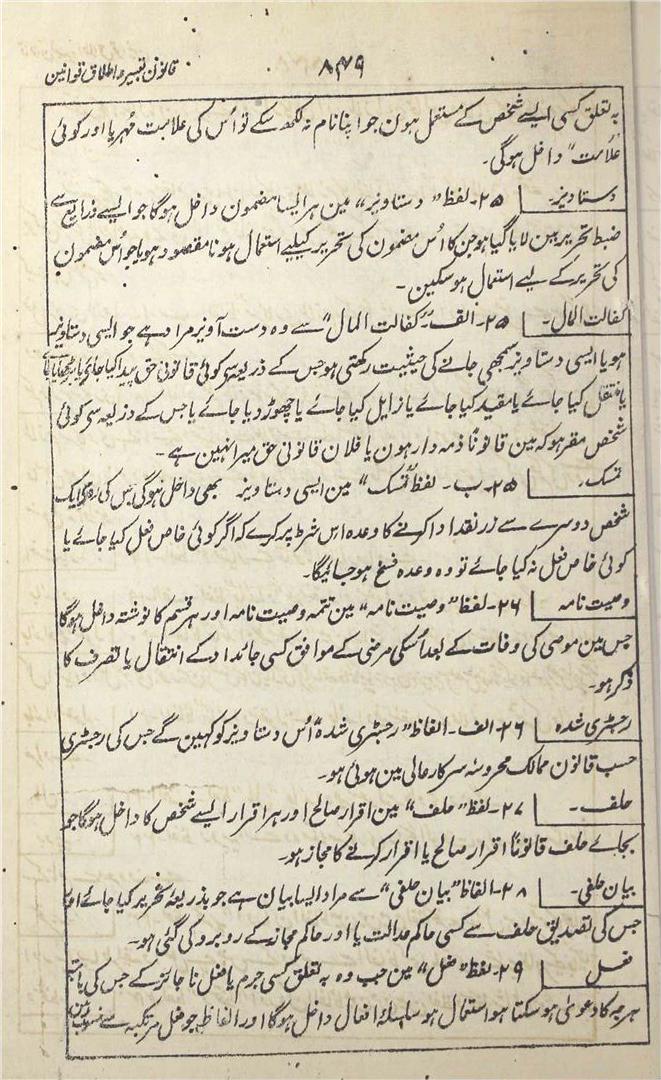 قانون تعبیر و اطلاق قوانین
۸۴۹
بہ تعلق کسی ایسے شخص کے مستعمل ہون جو اپنا نام نہ لکھ سکے تو اُس کی علامت مُہر یا اور کوئی
علامت” داخل ہوگی۔
دستاویز۔ ۲۵۔ لفظ” دستاویز“ مین ہر ایسا مضمون داخل ہوگا جو ایسے ذرایع سے
ضبط تحریر مین لایا گیا ہو جن کا اُس مضمون کی تحریر کیلیے استعمال ہونا مقصود ہو یا جو اُس مضمون
کی تحریر کے لیے استعمال ہو سکین۔
کفالت المال۔ ۲۵۔ الف۔ ”کفالت المال“ سے وہ دست آویز مراد ہے جو ایسی دستاویز
ہو یا ایسی دستاویز سمجھی جانے کی حیثیت رکھتی ہو جس کے ذریعہ سی کوئی قانونی حق پیدا کیا جائے یا بڑھایا جائے
یا منتقل کیا جائے یا مقید کیا جائے یا زایل کیا جائے یا چھوڑ دیا جائے یا جس کے ذریعہ سی کوئی
شخص مقر ہو کہ مین قانوناً ذمہ دار ہون یا فلان قانونی حق میرا نہین ہے۔
تمسک۔ ۲۵۔ ب۔ لفظ ”تمسک“ مین ایسی دستاویز بھی داخل ہوگی جس کی رو سی ایک
شخص دوسرے سے زر نقد ادا کرنے کا وعدہ اس شرط پر کرے کہ اگر کوئی خاص فعل کیا جائے یا
کوئی خاص فعل نہ کیا جائے تو وہ وعدہ فسخ ہو جائیگا۔
وصیت نامہ ۲۶۔ لفظ ”وصیت نامہ“ مین تتمہ وصیت نامہ اور ہر قسم کا نوشتہ داخل ہوگا
جس مین موصی کی وفات کے بعد اُسکی مرضی کے موافق کسی جائداد کے انتقال یا تصرف کا
ذکر ہو۔
رجسٹری شدہ ۲۶۔ الف۔ الفاظ ”رجسٹری شدہ“ اُس دستاویز کو کہین گے جس کی رجسٹری
حسب قانون ممالک محروسہ سرکار عالی مین ہوئی ہو۔
حلف۔ ۲۷۔ لفظ” حلف“ مین اقرار صالح اور ہر اقرار ایسے شخص کا داخل ہوگا جو
بجائے حلف قانوناً اقرار صالح یا اقرار کرنے کا مجاز ہو۔
بیان حلفی۔ ۲۸۔ الفاظ ”بیان حلفی“ سے مراد ایسا بیان ہے جو بذریعۂ تحریر کیا جائے اور
جس کی تصدیق حلف سے کسی حاکم عدالت یا اور حاکم مجاز کے روبرو کی گئی ہو۔
فعل ۲۹۔ لفظ” فعل“ مین جب وہ بہ تعلق کسی جرم یا فعل ناجائز کے جس کی بابتہ
ہرجہ کا دعویٰ ہو سکتا ہو استعمال ہو سلسلۂ افعال داخل ہوگا اور الفاظ جو فعل مرتکبہ سے منسوب ہین